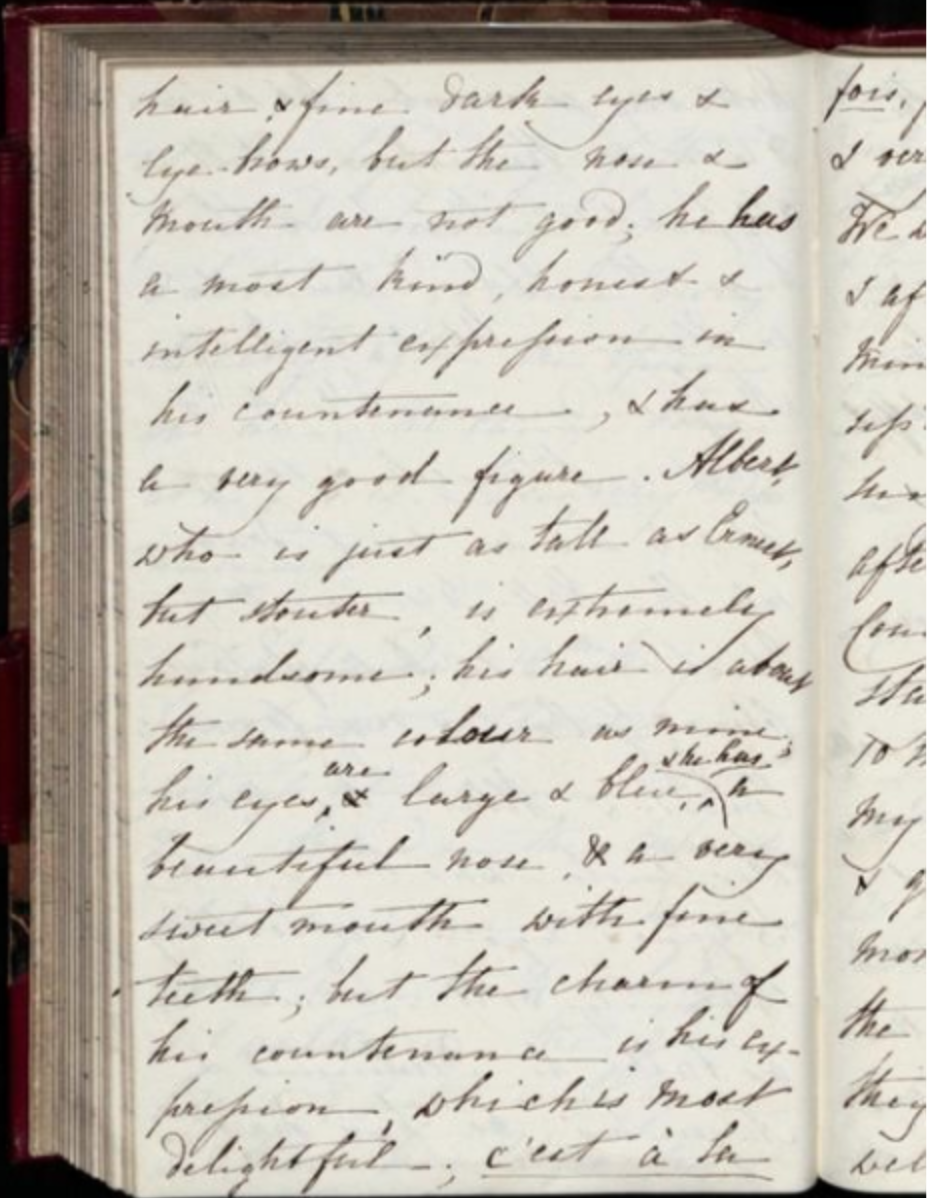 hair, & fine dark eyes &
eye-brows, but the nose &
mouth are not good; he has
a most kind, honest &
intelligent expression in
his countenance, & has
a very good figure. Albert,
who is just as tall as Ernest,
but stouter, is extremely
handsome; his hair is about
the same colour as mine;
are she has
his eyes, & large & blue, a
beautiful nose, & a very
sweet mouth with fine
teeth; but the charm of
his countenance is his ex-
pression, which is most
delightful; c'est à la
fois,
I
We
I af
after
to
my
& g
the
they